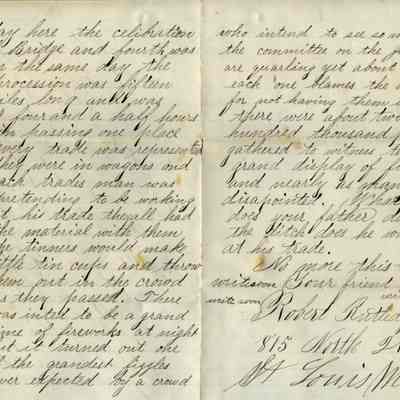 day here the celibration
Bridge and fourth was
n the same day the
procession was fifteen
iles, long and was
four and a half hours
n passing one place
every trade was represented
hey were in wagons and
ach trades man was
retending to be working
t, his trade they all had
he material with them
tinners would make
ittle tin cups and throw
hem out in the crowd
s they passed. There
was inted to be a grand
ime of fireworks at night
ut it turned out one
f the grandest figgles
ver expected by a crowd
who intend to see som
the committee on the
are quarling yet about
each one blames the
for not having them
there were about two
hundred thousand
gathered to witness t
grand display of fi
and nearly as man
disapointed. What
does your father, d
the Ditch does he w
at his trade.
No more this
write soon Your friend
write soon
Robert
815 North
St Louis M